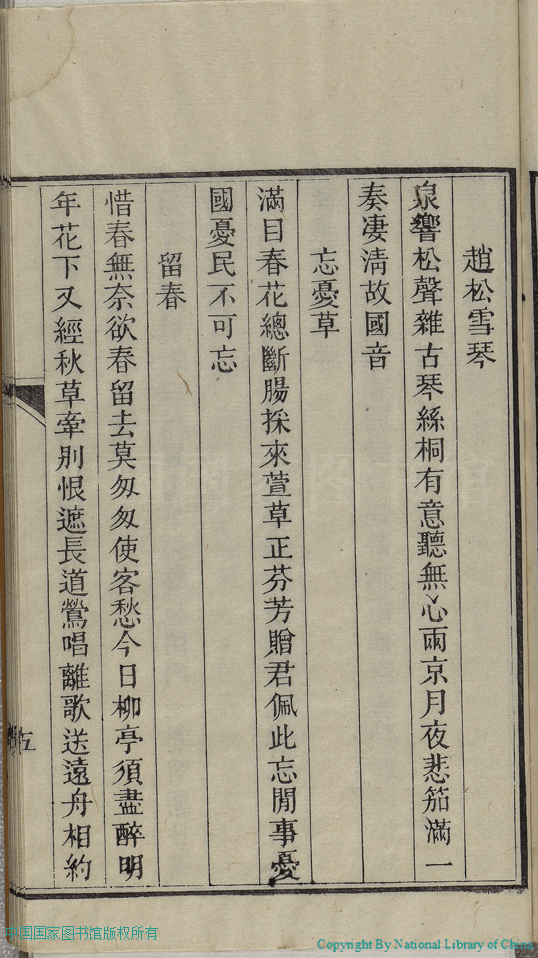 趙松雪琴
泉響松聲雜古琴絲桐有意聽無心兩京月夜悲笳滿一
奏凄淸故國音
忘憂草
滿目春花總斷腸採來萱草正芬芳贈君佩此忘閒事憂
國憂民不可忘
留春
惜春無奈欲春留去莫匆匆使客愁今日柳亭須盡醉明
年花下又經秋草牽別恨遮長道鶯唱離歌送遠舟相約
五
中国国家图书馆版权所有
Copyright By National Library of China